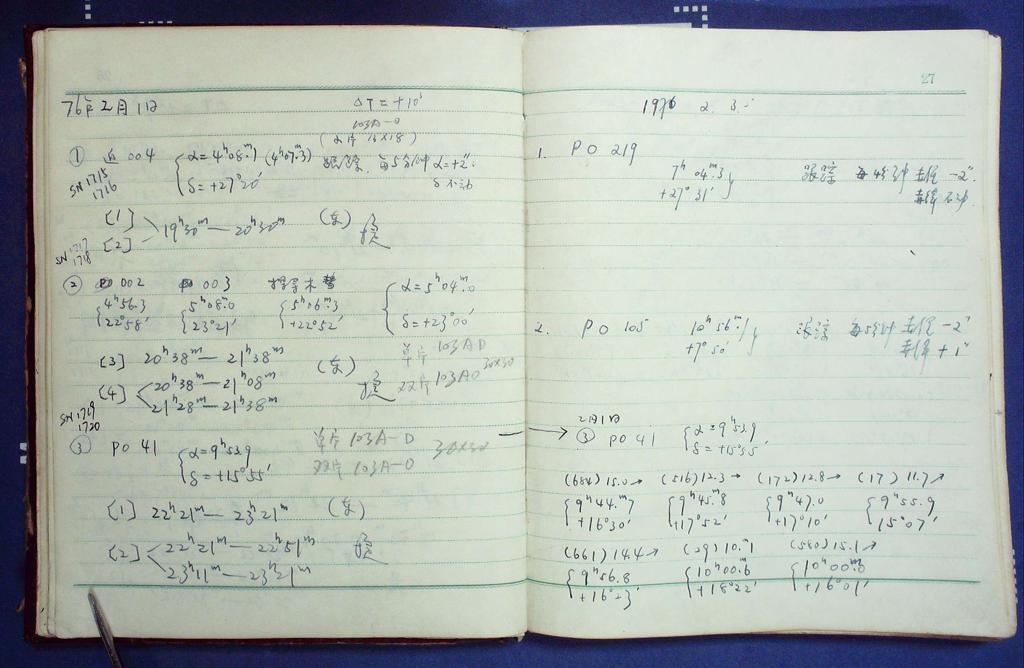 76年2月1日
ΔT=+10ˢ
103A-0
(2片 16×18)
① 近 004 {α=4ʰ08ᵐ.1 (4ʰ07ᵐ.3) 跟踪. 每5分钟 α=+2″.
δ=+27°20′ δ不动
SN 1715
1716
[1]
[2] 19ʰ30ᵐ—20ʰ30ᵐ (东)
SN 1717
1718
② PO 002 PO 003 {α=5ʰ04ᵐ.0
{4ʰ56.3 {5ʰ08ᵐ.0 {5ʰ06ᵐ.3
22°58′ 23°21′ +22°52′ δ=+23°00′
[3] 20ʰ38ᵐ—21ʰ38ᵐ (东) 单片 103AD
30×30
[4] 20ʰ38ᵐ—21ʰ08ᵐ 双片 103AO
21ʰ28ᵐ—21ʰ38ᵐ
SN 1719
1720
③ PO 41 {α=9ʰ53.9 单片 103A-D 30×30
δ=+15°55′ 双片 103A-0
[1] 22ʰ21ᵐ—23ʰ21ᵐ (东)
[2] 22ʰ21ᵐ—22ʰ51ᵐ
23ʰ11ᵐ—23ʰ21ᵐ
27
1976 2. 3.
1. PO 219
7ʰ 04ᵐ.3 跟踪 每4分钟 赤经 -2″.
+27° 31′ 赤纬不动.
2. PO 105 10ʰ56ᵐ.1 跟踪 每5分钟 赤经 -2″
+7°50′ 赤纬 +1″
2月1日
→ ③ PO 41 {α=9ʰ53.9
δ=+15°55′
(684) 15.0→ (516) 12.3→ (172) 12.8→ (17) 11.7→
{9ʰ44ᵐ.7 {9ʰ45ᵐ.8 {9ʰ47.0 {9ʰ55.9
+16°30′ +17°52′ +17°10′ 15°07′
(661) 14.4→ (29) 10.1 (580) 15.1↗
{9ʰ56.8 {10ʰ00.6 {10ʰ00ᵐ.0
+16°23′ +18°22′ +16°01′